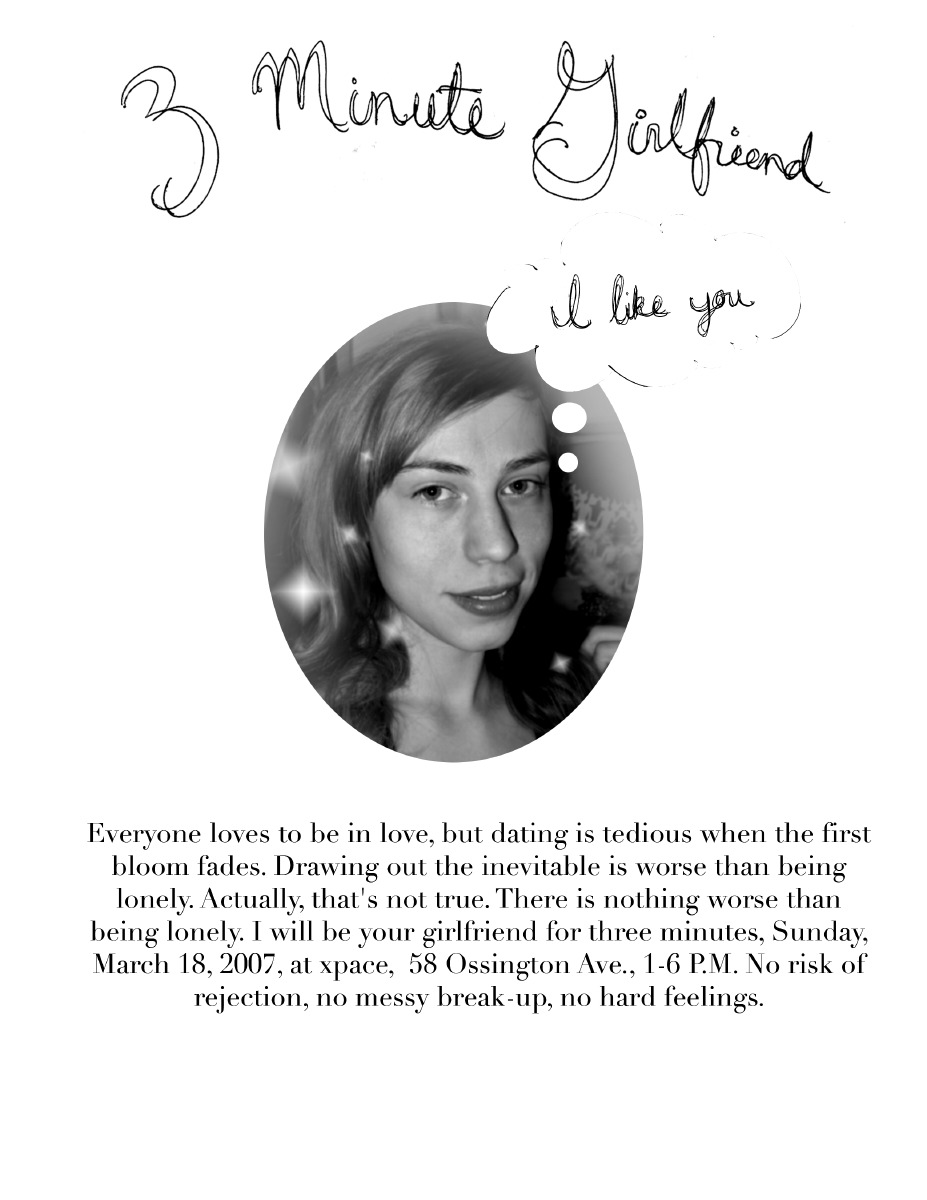 3 Minute Girlfriend
I like you
Everyone loves to be in love, but dating is tedious when the first
bloom fades. Drawing out the inevitable is worse than being
lonely. Actually, that's not true. There is nothing worse than
being lonely. I will be your girlfriend for three minutes, Sunday,
March 18, 2007, at xpace,  58 Ossington Ave., 1-6 P.M. No risk of
rejection, no messy break-up, no hard feelings.